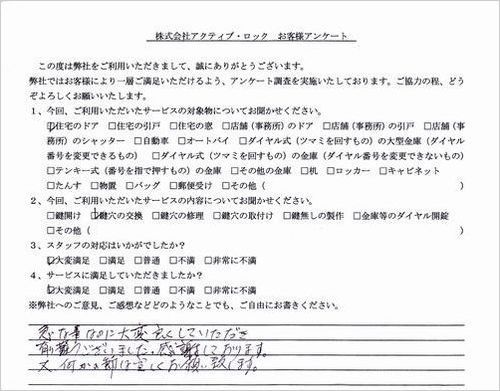 株式会社アクティブ・ロック お客様アンケート
この度は弊社をご利用いただきまして、誠にありがとうございます。
弊社ではお客様により一層ご満足いただけるよう、アンケート調査を実施いたしております。ご協力の程、どう
ぞよろしくお願いいたします。
1、今回、ご利用いただいたサービスの対象物についてお聞かせください。
☑住宅のドア □住宅の引戸 □住宅の窓 □店舗(事務所)のドア □店舗(事務所)の引戸 □店舗(事
務所)のシャッター □自動車 □オートバイ □ダイヤル式(ツマミを回すもの)の大型金庫(ダイヤル
番号を変更できるもの) □ダイヤル式(ツマミを回すもの)の金庫(ダイヤル番号を変更できないもの)
□テンキー式(番号を指で押すもの)の金庫 □その他の金庫 □机 □ロッカー □キャビネット
□たんす □物置 □バッグ □郵便受け □その他( )
2、今回、ご利用いただいたサービスの内容についてお聞かせください。
□鍵開け ☑鍵穴の交換 □鍵穴の修理 □鍵穴の取付け □鍵無しの製作 □金庫等のダイヤル開錠
□その他( )
3、スタッフの対応はいかがでしたか?
☑大変満足 □満足 □普通 □不満 □非常に不満
4、サービスに満足していただきましたか?
☑大変満足 □満足 □普通 □不満 □非常に不満
※弊社へのご意見、ご感想などどのようなことでも、ご自由にお書きください。
急な事なのに大変良くしていただき
有難うございました。感謝しております。
又、何かの節は宜しくお願い致します。